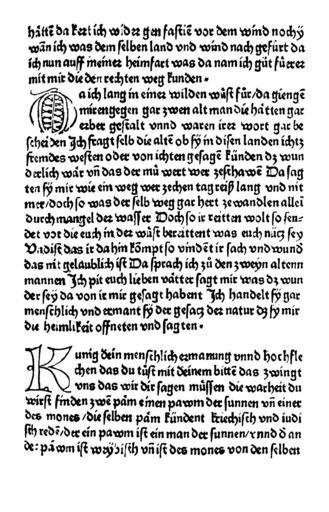 hättē da kert ich wider gen fastiē vor dem wind nochÿ
wān ich was dem selben land vnd wind nach gefürt da
ich nun auff meiner heimfart was da nam ich güt fürer
mit mir die den rechten weg kunden.
Da ich lang in einer wilden wüst für/da giengē
mir engegen gar zwen alt man die hätten gar
erber gestalt vnnd waren irer wort gar be
scheiden Ich fragt selb die altē ob sÿ in disen landen ichtz
fremdes westen oder von ichten gesagē kündē dz wun
derlich wär vn̄ das der mü wert wer zeschawē Da sag
ten sÿ mir wie ein weg wer zechen tag reiß lang vnd nit
mer/doch so was der selb weg gar hert ze wandlen allei
durch mangel der wasser Doch so ir reitten wolt so sen-
det vor die euch in der wüst berättent was euch nücz seÿ
Vn̄ dist das ir dahin kōmpt so vindēt ir sach vnd wund
das nit gelaublich ist Da sprach ich zü den zweÿn altenn
mannen Ich pit euch lieben vätter sagt mir was dz wun
der seÿ da von ir mir gesagt habent Ich handelt sÿ gar
menschlich vnd ermant sÿ der gesacz der natur dz sÿ mir
die heimlikeit offneten vnd sagten.
Kunig dein menschlich ermanung vnnd hochfle
chen das du tüst mit deinem bittē das zwingt
vns das wir dir sagen müssen die warheit du
wirst finden zwē päm einen pawm der sunnen vn̄ einer
des mones/die selben päm kündent kriechisch vnd iudi
sch redē/der ein pawm ist ein man der sunnen/vnnd d an
der pawm ist weÿbisch vn̄ ist des mones von den selben